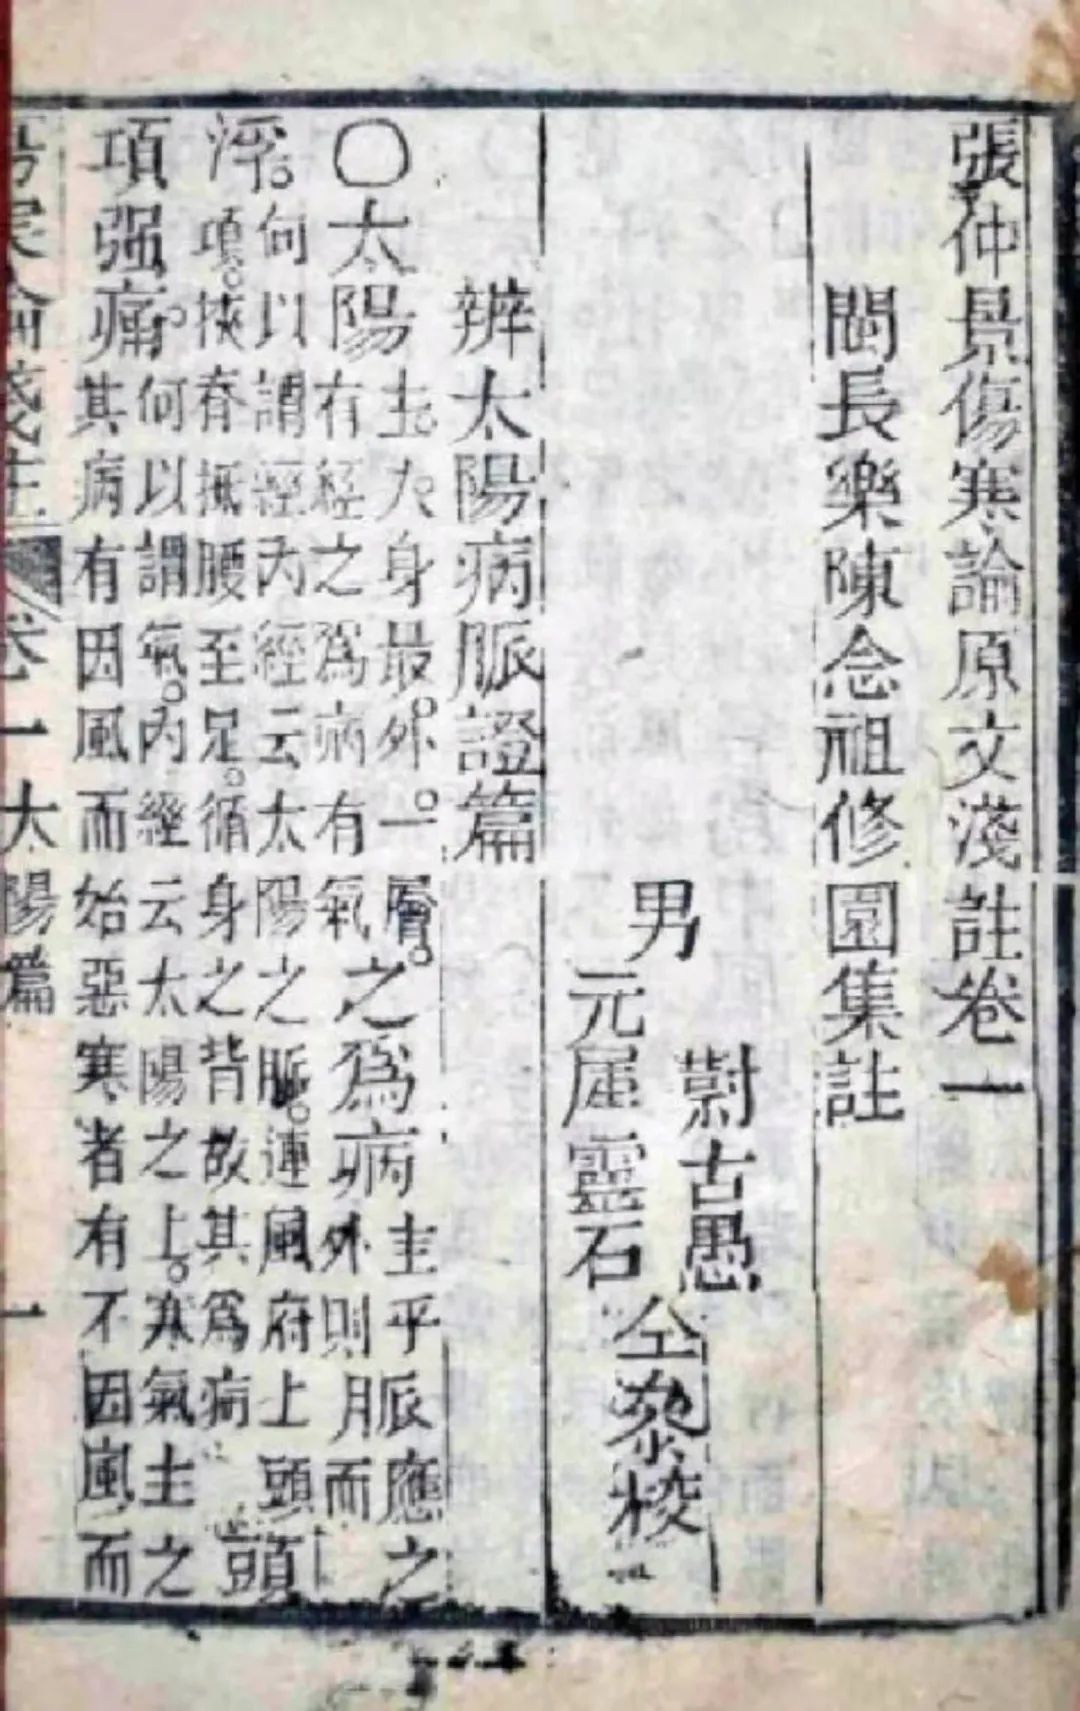 張仲景傷寒論原文淺註卷一
閩長樂陳念祖修園集註
男
蔚古愚
元犀靈石
仝叅校
辨太陽病脈證篇
〇太陽
主人身最。外。一層。
有經之為病有氣
之為病
主乎脈應之
外則月而
浮。
何以謂經內經云太陽之脈。連風府上頭
項。挾脊抵腰至足。循身之背故其為病
頭
項强痛。
何以謂氣。內經云太陽之上。寒氣主之
其病有因風而始惡寒者有不因風而
傷寒論淺註
卷一
太陽篇
一